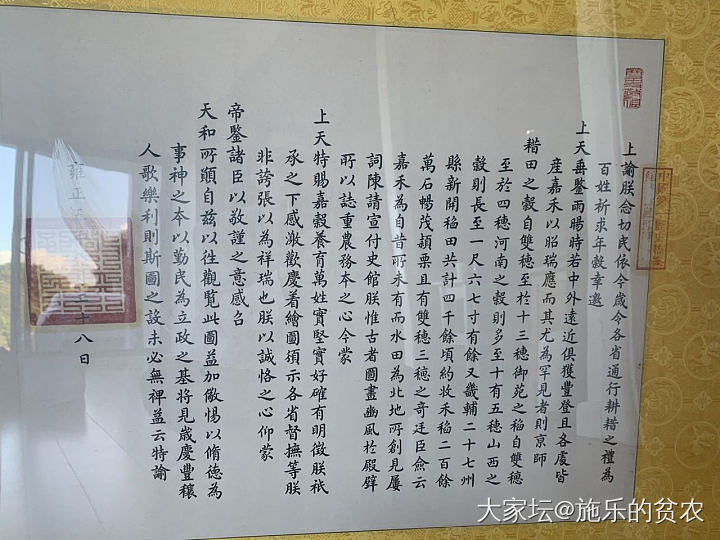 上諭朕念切民依今歲令各省通行耕耤之禮為
百姓祈求年穀幸邀
上天垂鑒雨暘時若中外遠近俱獲豐登且各處皆
產嘉禾以昭瑞應而其尤為罕見者則京師
耤田之穀自雙穗至於十三穗御苑之稻自雙穗
至於四穗河南之穀則多至十有五穗山西之
穀則長至一尺六七寸有餘又畿輔二十七州
縣新開稻田共計四千餘頃約收禾稻二百餘
萬石暢茂穎栗且有雙穗三穗之奇廷臣僉云
嘉禾為自昔所未有而水田為北地所創見屢
詞陳請宣付史館朕惟古者圖畫豳風於殿壁
所以誌重農務本之心今蒙
上天特賜嘉穀養育萬姓實堅實好確有明徵朕祇
承之下感激歡慶着繪圖頒示各省督撫等朕
非誇張以為祥瑞也朕以誠恪之心仰蒙
帝鑒諸臣以敬謹之意感召
天和所願自茲以往觀覽此圖益加儆惕以脩德為
事神之本以勤民為立政之基將見歲慶豐穰
人歌樂利則斯圖之設未必無裨益云特諭
雍正
二十八日
大家坛@施乐的贫农